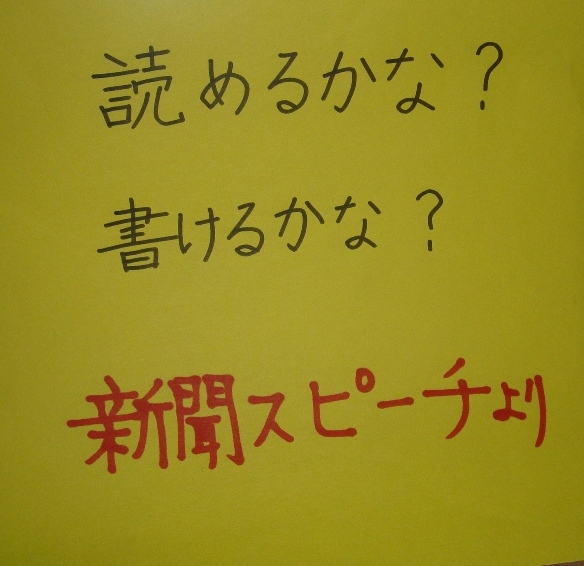 読めるかな?
書けるかな?
新聞スピーチより